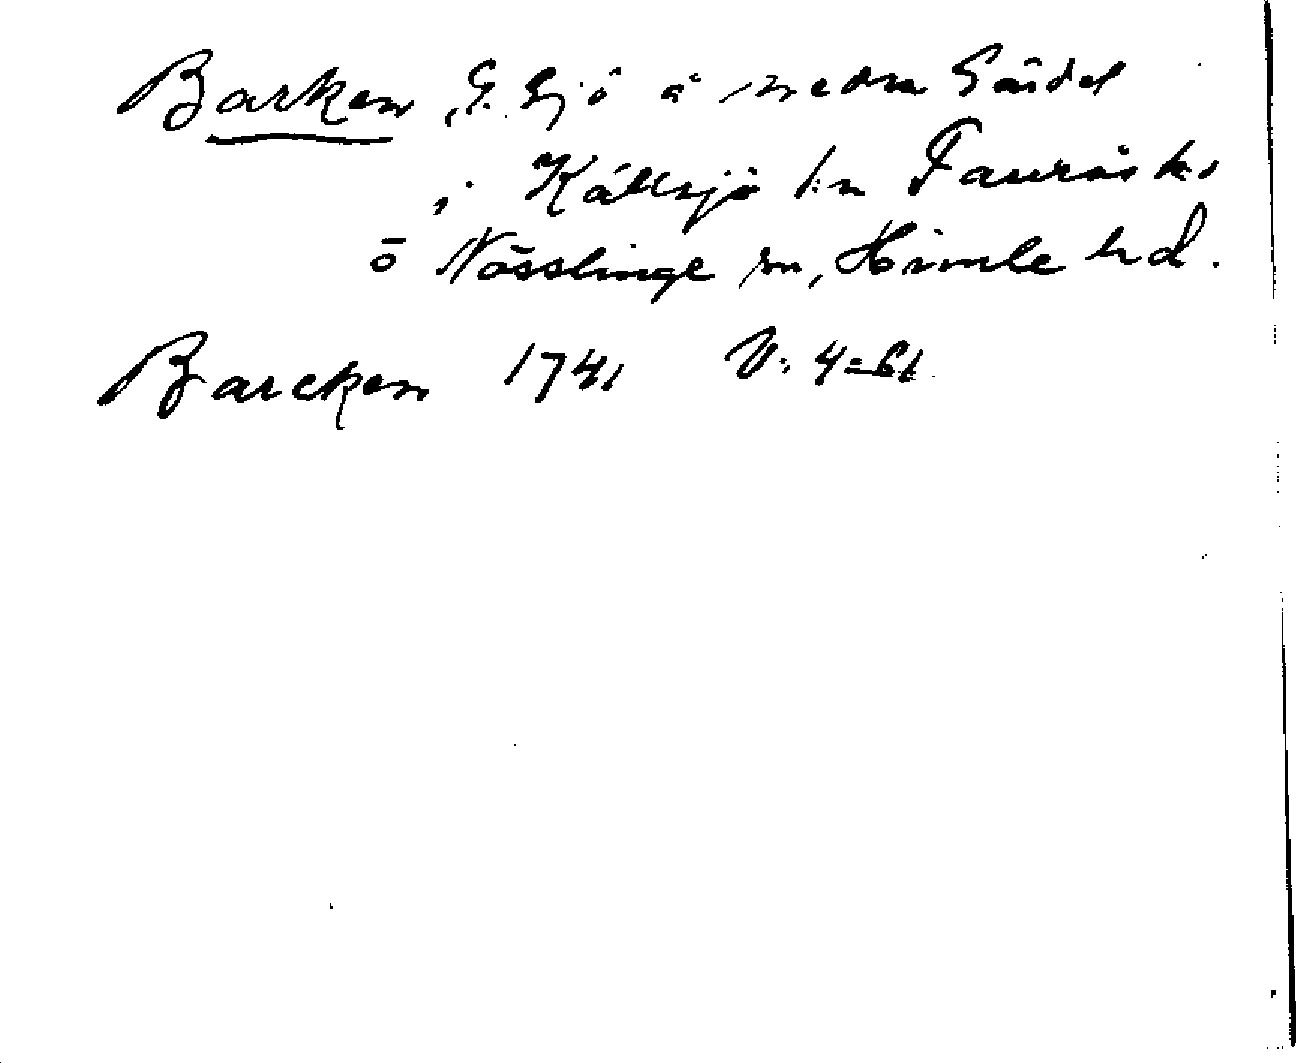 Barken, G. Sjö å nedra Gärdet
i Källsjö sn Faurås hd
o Nösslinge sn, Himle hd.
Barcken 1741 V: 4=61